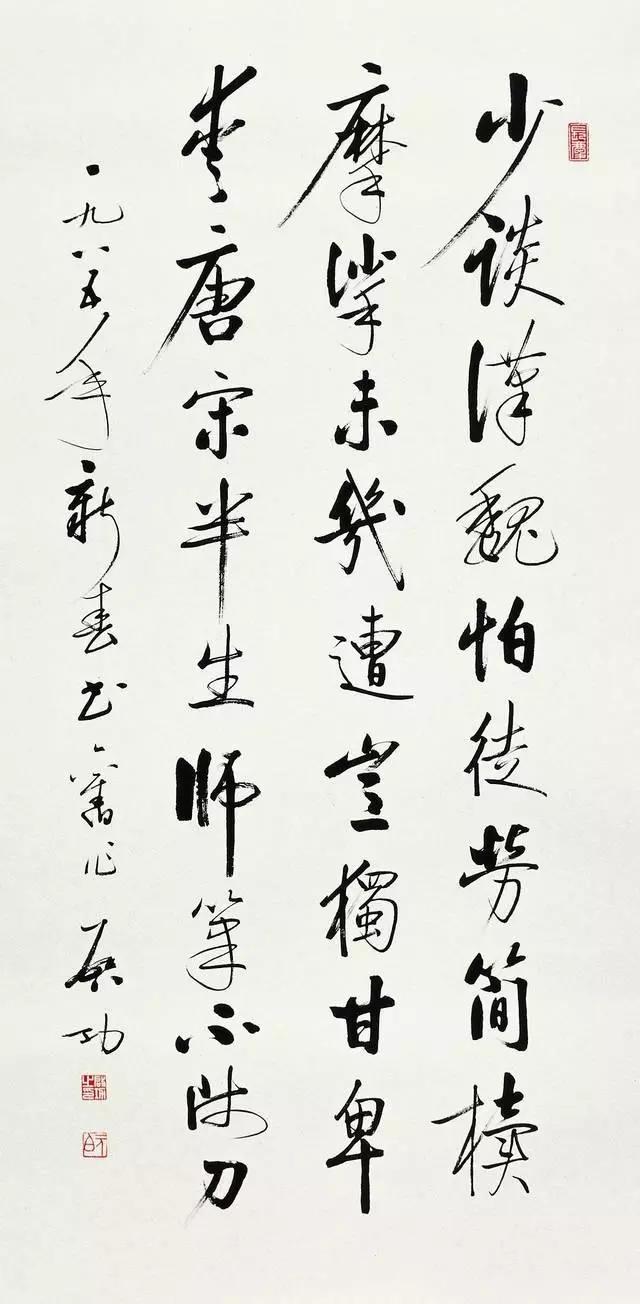 少談漢魏怕徒勞簡牘
摩挲未幾遭豈獨甘卑
愛唐宋半生師筆不師刀
一九八五年新春書舊作 啟功
元白